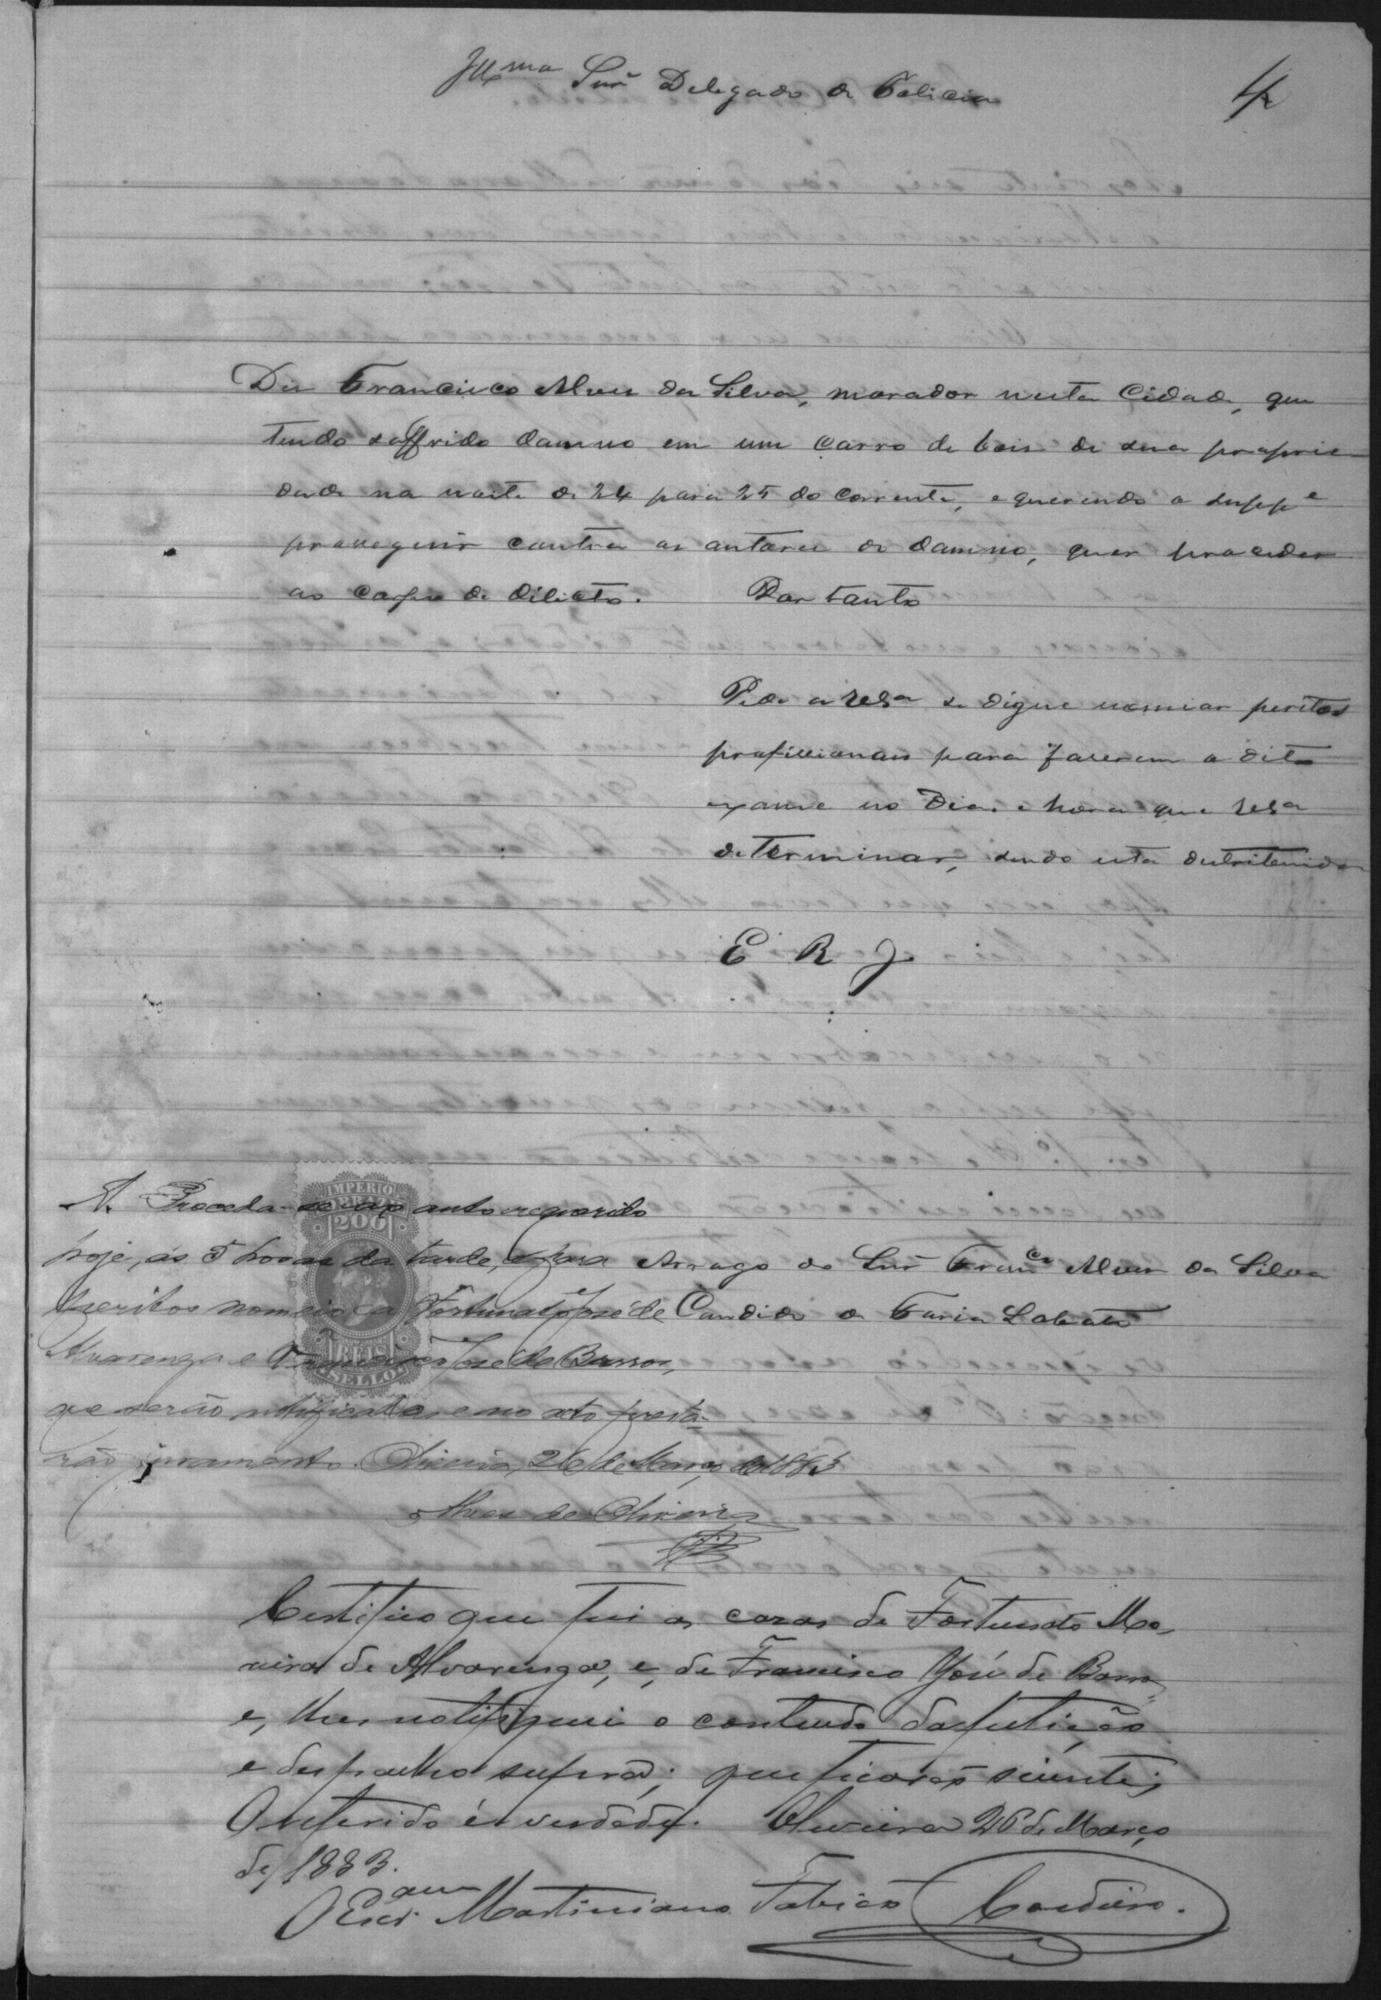 Illmo Snr Delegado de Policia
4
Diz Francisco Alves da Silva, morador nesta Cidade, que
tendo soffrido damno em um carro de bois de sua proprie
dade na noite de 24 para 25 do corrente, e querendo o suppe
proseguir contra os autores do damno, quer proceder
ao corpo de delicto. Por tanto
Pede a VSa se digne nomiar peritos
profissionais para fazerem o dito
exame no dia e hora que VSa
determinar, sendo esta destribuida
E R J
IMPERIO
DO BRAZIL
200
REIS
SELLO
A. Proceda-se ao auto requerido
hoje, ás 5 horas da tarde, e para
peritos nomeio a Fortunato de
Alvarenga e Francisco José de Barros,
que serão notificados e no acto presta-
rão juramento. Oliveira, 26 de Março de 1883
Alves de Oliveira
Arrogo do Snr Franco Alves da Silva
Candido de Faria Lobato
Certifico que fui as cazas de Fortunato Mo
reira de Alvarenga, e, de Francisco José de Barros
e, lhes notifiquei o contendo da petição
e despacho supra; que ficarão sciente;
O referido é verdade. Oliveira 26 de Março
de 1883.
O Escram Martiniano Fabião Cordeiro.